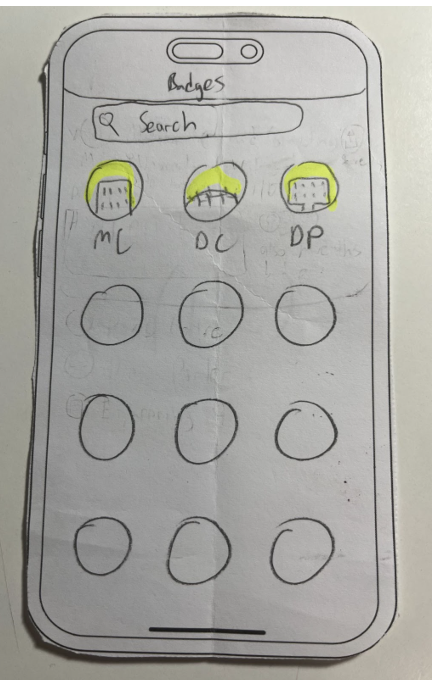 Badges
Search
MC DC DP